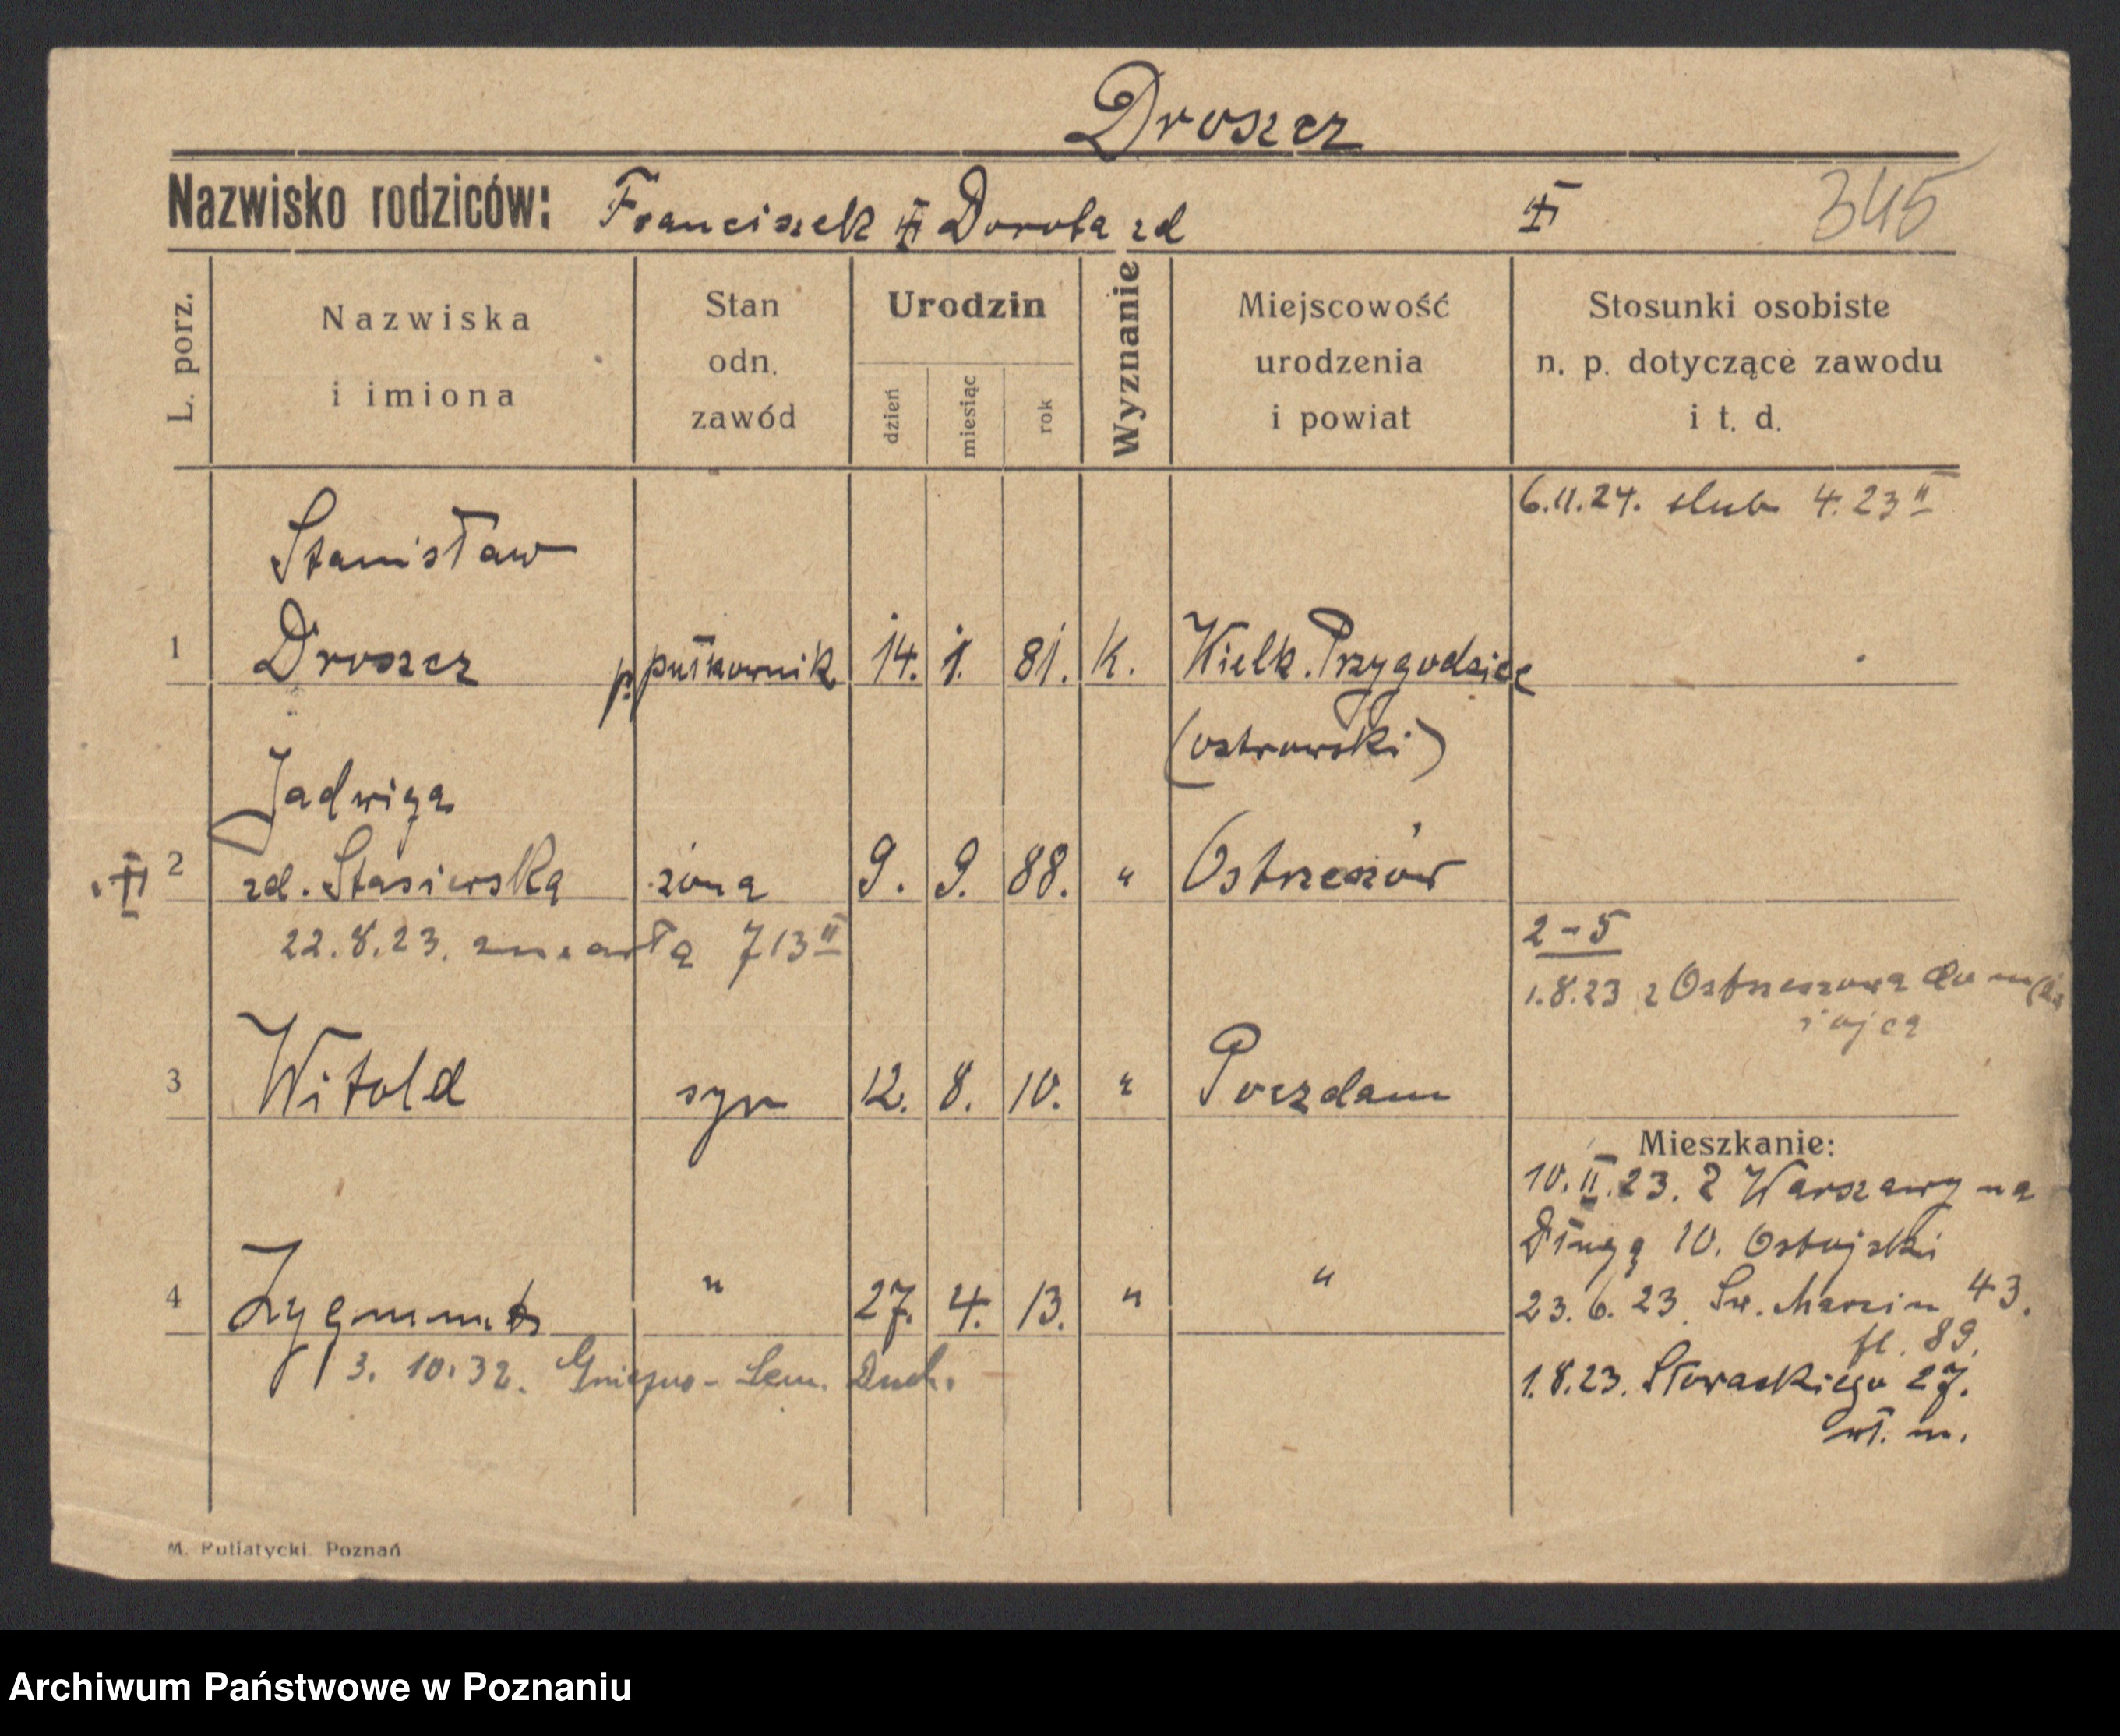 Droszcz
Nazwisko rodziców: Franciszek Dorota zd
345
L. porz.
Nazwiska i imiona
Stan odn. zawód
Urodzin
dzień
miesiąc
rok
Wyznanie
Miejscowość urodzenia i powiat
Stosunki osobiste n. p. dotyczące zawodu i t. d.
6.11.24. slub 4.23 II
Stanisław
1 Droszcz ppułkownik 14. 1. 81. K. Wielk. Przygodzice
(ostrowski)
Jadwiga
2 zd. Stasierska żona 9. 9. 88. " Ostrzeszów
22.8.23. zmarła 713 II
2-5
1.8.23 z Ostrzeszowa do
i ojca
3 Witold syn 12. 8. 10. " Poczdam
Mieszkanie:
10.II.23. z Warszawy na
Długą 10. Ostojski
4 Zygmunt " 27. 4. 13. " "
23.6.23. Św. Marcin 43.
fl. 89.
3. 10.32. Gniezno - Sem. Duch.
1.8.23. Słowackiego 27.
wł. m.
M. Putiatycki. Poznań
Archiwum Państwowe w Poznaniu